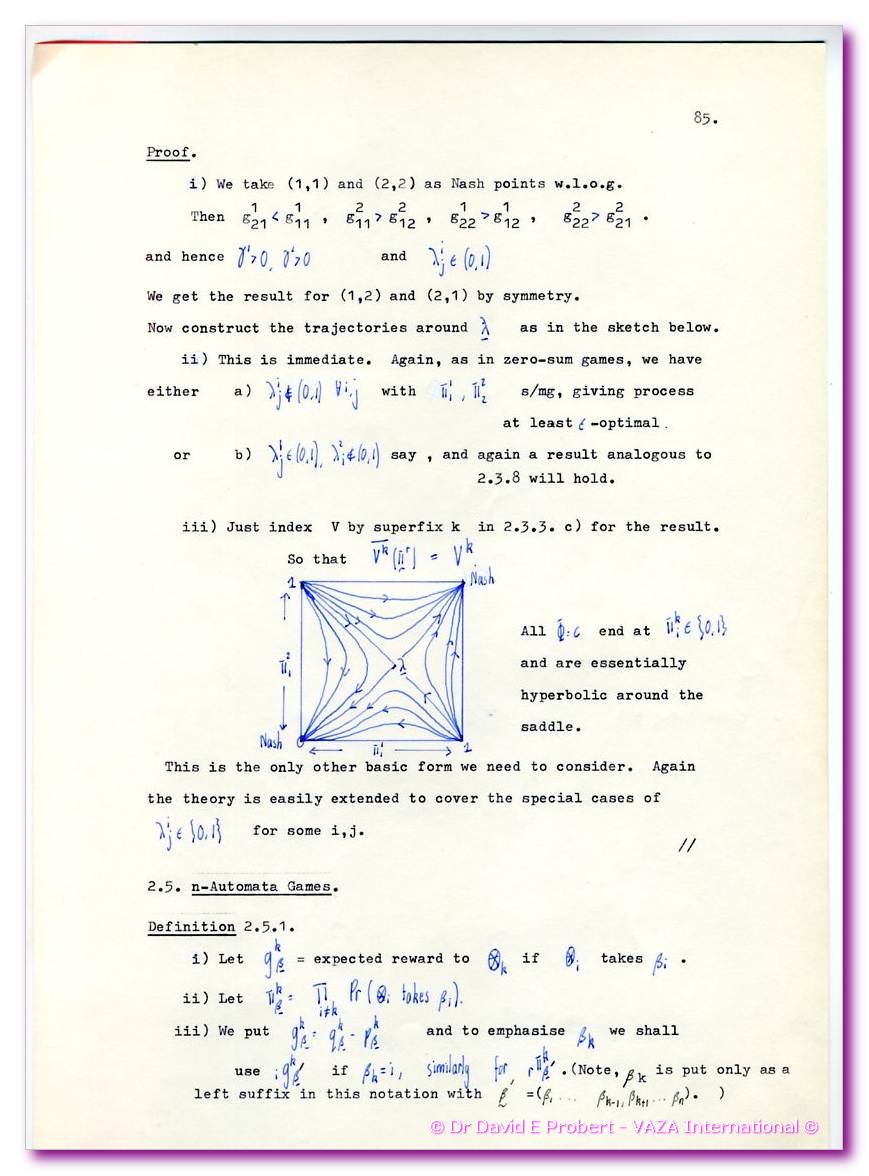 85.
Proof.
i) We take (1,1) and (2,2) as Nash points w.l.o.g.
Then g^1_21 < g^1_11 , g^2_11 > g^2_12 , g^1_22 > g^1_12 , g^2_22 > g^2_21 .
and hence γ^1>0, γ^2>0 and λ^i_j ∈ (0,1)
We get the result for (1,2) and (2,1) by symmetry.
Now construct the trajectories around λ as in the sketch below.
ii) This is immediate. Again, as in zero-sum games, we have
either a) λ^i_j ∉ (0,1) ∀ i,j with Π^1_1 , Π^2_2 s/mg, giving process
at least ε-optimal.
or b) λ^1_j ∈ (0,1), λ^2_i ∉ (0,1) say , and again a result analogous to
2.3.8 will hold.
iii) Just index V by superfix k in 2.3.3. c) for the result.
So that V^k(Π^r) = V^k
1 Nash
All end at Π^k_i ∈ {0,1}
Π^2_1
λ
and are essentially
hyperbolic around the
saddle.
Nash 0 Π^1_1 1
This is the only other basic form we need to consider. Again
the theory is easily extended to cover the special cases of
λ^i_j ∈ {0,1} for some i,j.
//
2.5. n-Automata Games.
Definition 2.5.1.
i) Let g^k_β = expected reward to ⊗_k if ⊗_i takes β_i .
ii) Let Π^k_β = Π_{i≠k} Pr(⊗_i takes β_i).
iii) We put g^k_β = q^k_β - p^k_β and to emphasise β_k we shall
use _i g^k_β' if β_k = i, similarly for, _r Π^k_β' .(Note, β_k is put only as a
left suffix in this notation with β' =(β_1 ... β_k-1, β_k+1 ... β_n). )
© Dr David E Probert - VAZA International ©